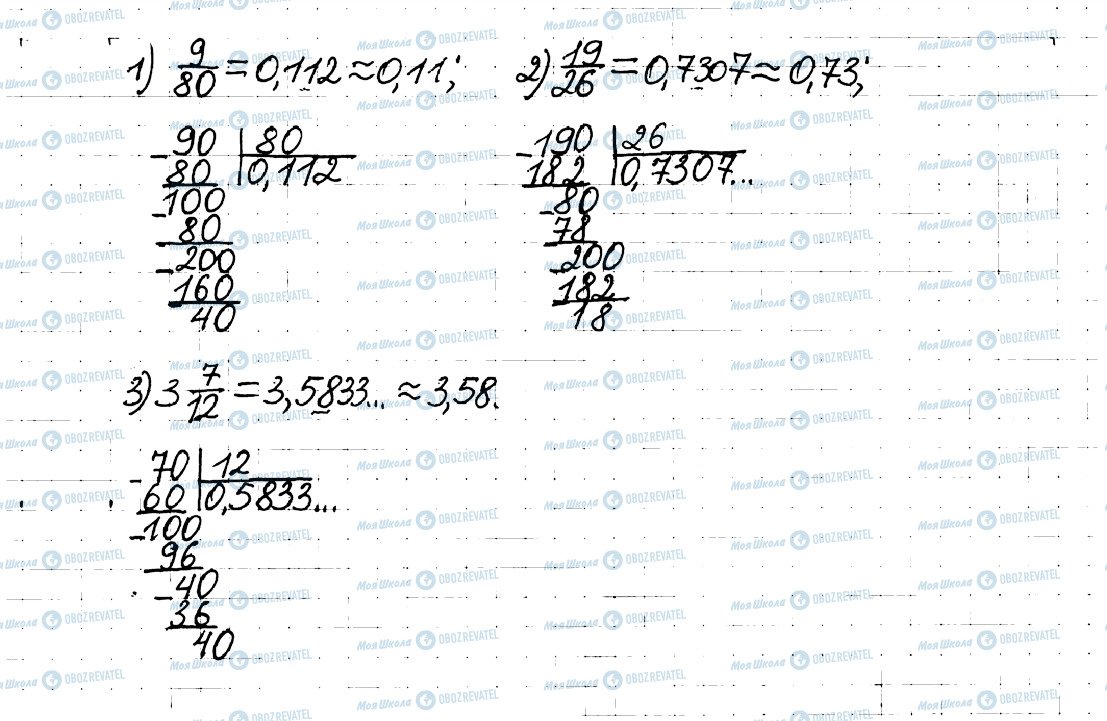 1) 9/80 = 0,112 ≈ 0,11; 2) 19/26 = 0,7307 ≈ 0,73;
- 90 | 80
80 | 0,112
- 100
80
- 200
160
40
- 190 | 26
182 | 0,7307...
- 80
78
- 200
182
18
3) 3 7/12 = 3,5833... ≈ 3,58.
- 70 | 12
60 | 0,5833...
- 100
96
- 40
36
40
Моя Школа OBOZREVATEL